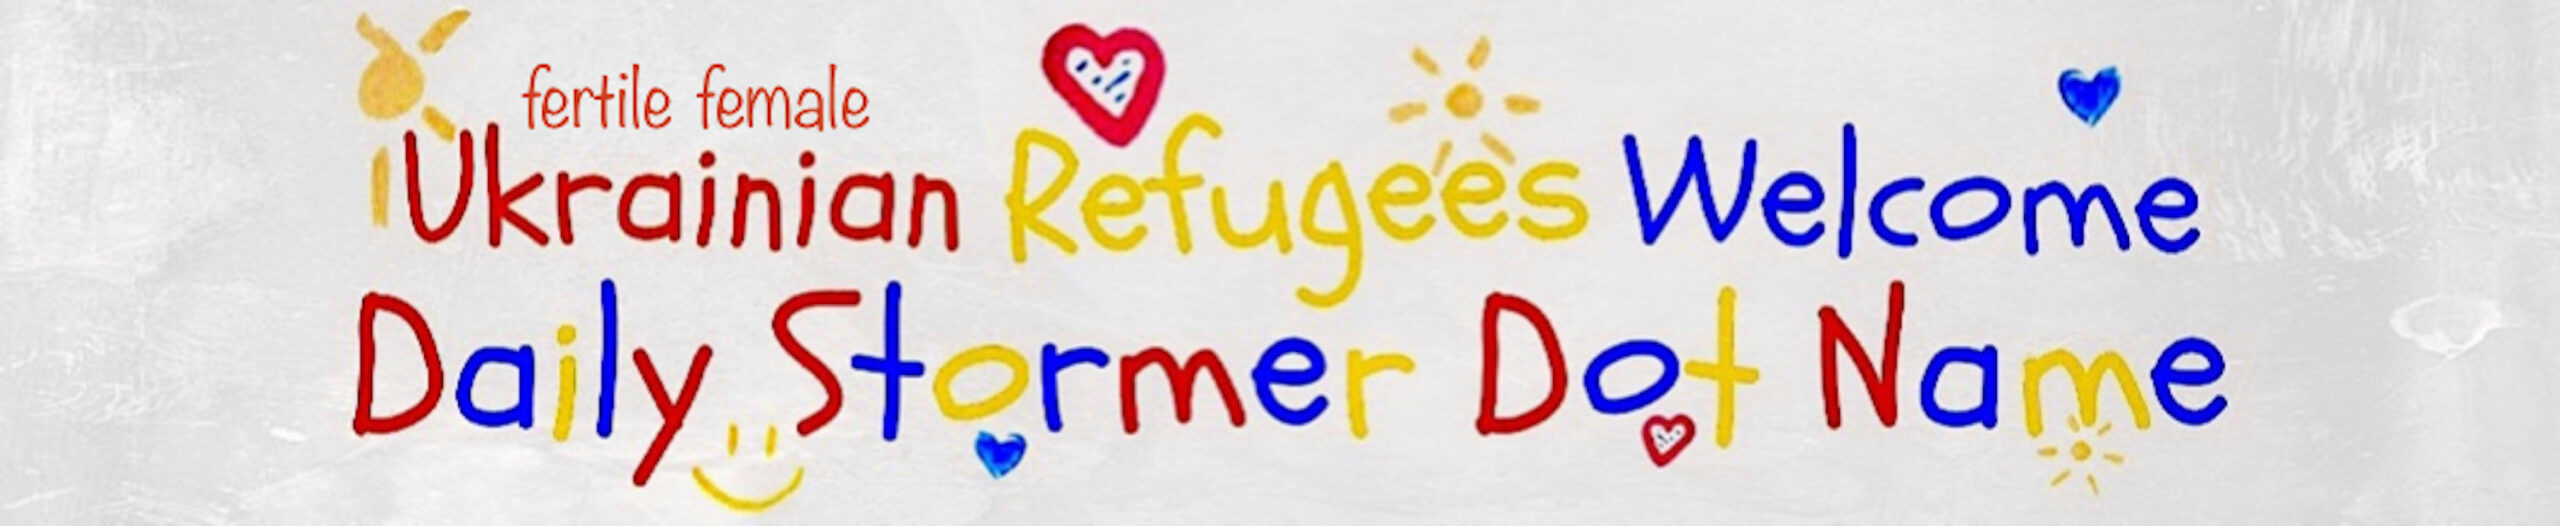 fertile female
Ukrainian Refugees Welcome
Daily Stormer Dot Name